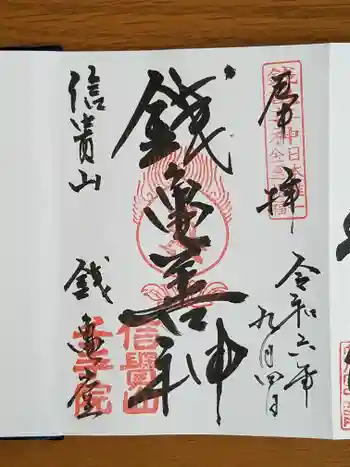 奉拝
令和六年
九月四日
銭亀善神
信貴山
銭亀堂
信貴山
千手院